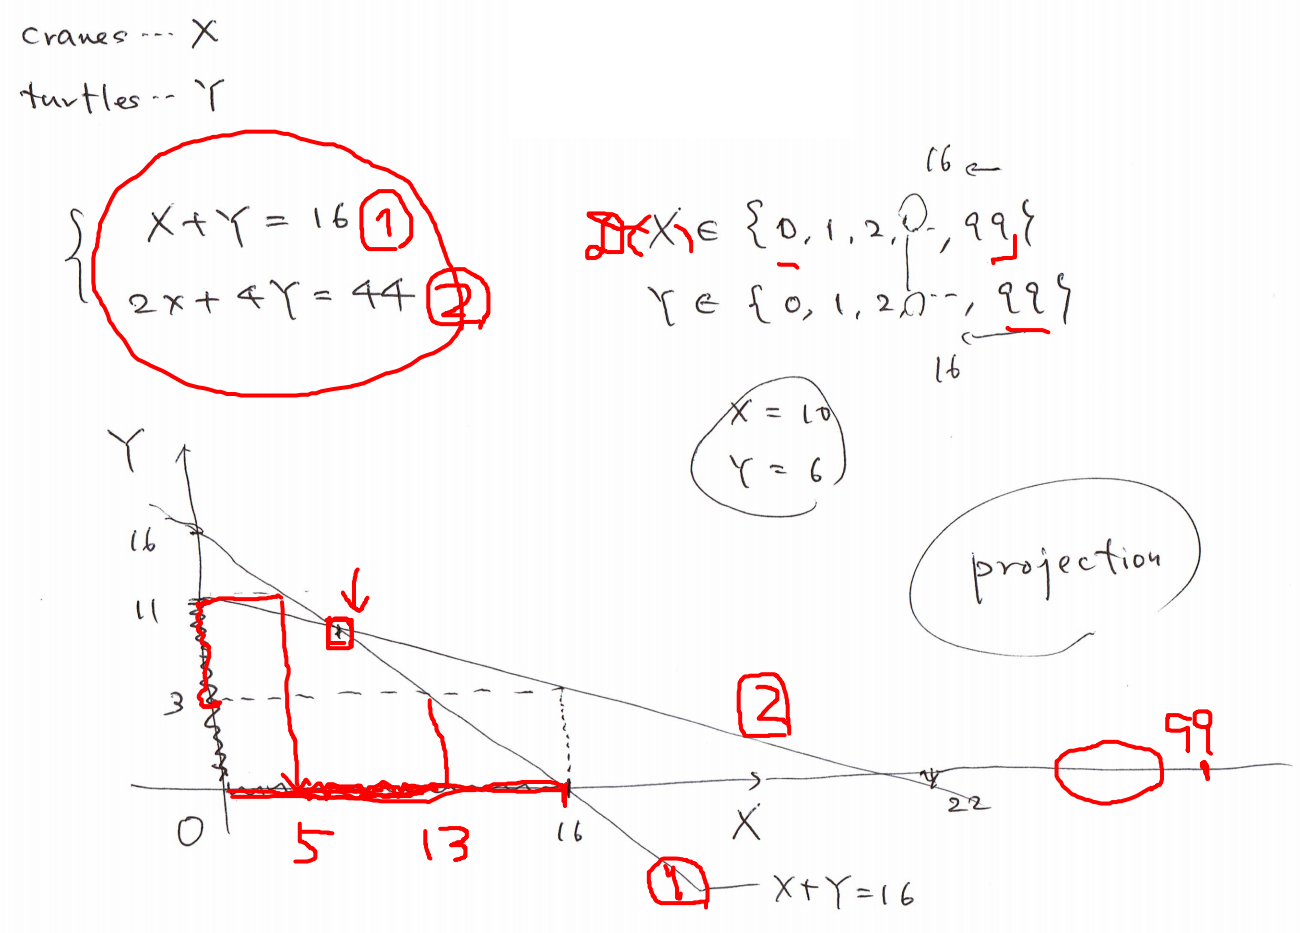 cranes --- X
turtles -- Y
X + Y = 16 1
2x + 4Y = 44 2
16 ←
D(X) ∈ {0, 1, 2, --, 99}
Y ∈ {0, 1, 2, --, 99}
16
X = 10
Y = 6
projection
Y
16
11
3
2
99
22
0
5
13
16
X
1
X + Y = 16